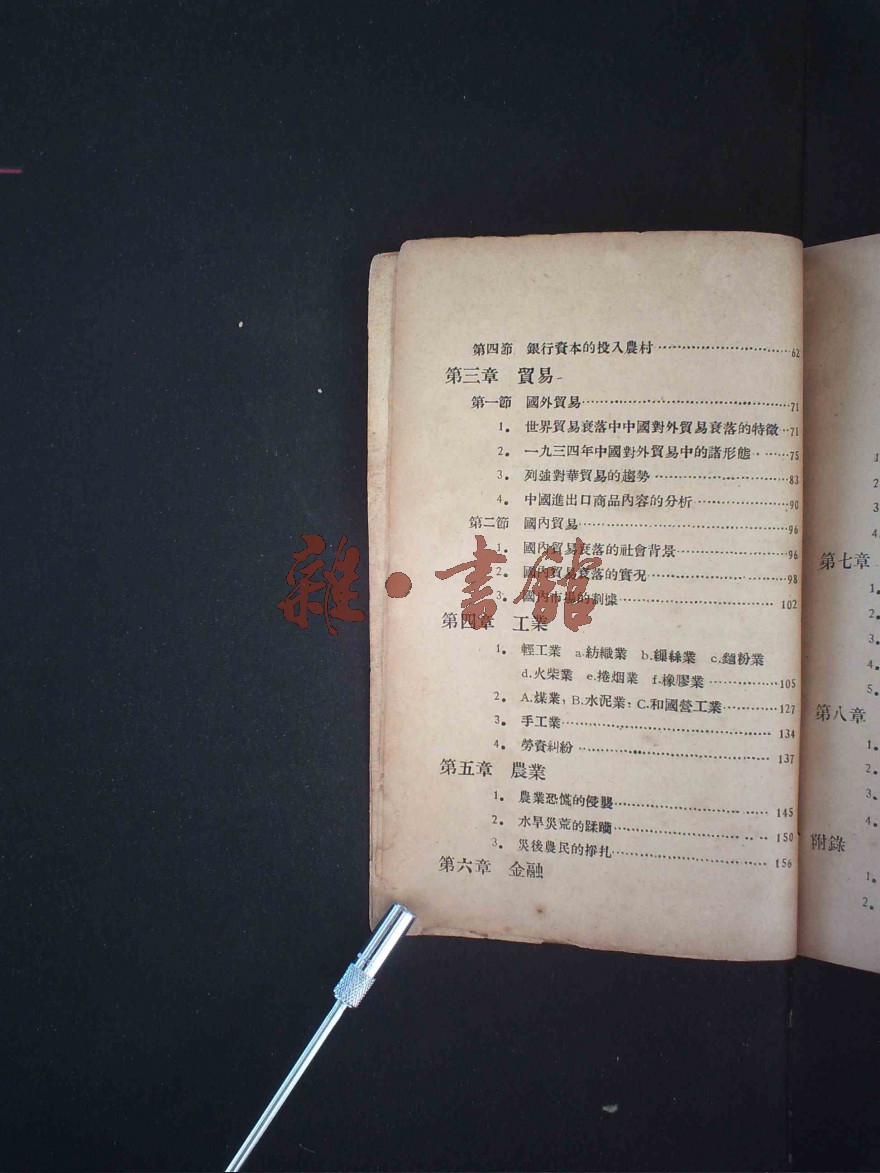 第四節 銀行資本的投入農村…………62
第三章 貿易
第一節 國外貿易…………71
1. 世界貿易衰落中中國對外貿易衰落的特徵…71
2. 一九三四年中國對外貿易中的諸形態……75
3. 列強對華貿易的趨勢…………83
4. 中國進出口商品內容的分析…………90
第二節 國內貿易…………96
1. 國內貿易衰落的社會背景…………96
2. 國內貿易衰落的實況…………98
3. 國內市場的割據…………102
第四章 工業
1. 輕工業 a.紡織業 b.繅絲業 c.麵粉業
d.火柴業 e.捲烟業 f.橡膠業…………105
2. A.煤業; B.水泥業; C.和國營工業…………127
3. 手工業…………134
4. 勞資糾紛…………137
第五章 農業
1. 農業恐慌的侵襲…………145
2. 水旱災荒的蹂躪…………150
3. 災後農民的掙扎…………156
第六章 金融
1
2
3
4.
第七章
1.
2.
3.
4.
5.
第八章
1.
2.
3.
4.
附錄
1.
2.
雜·書館